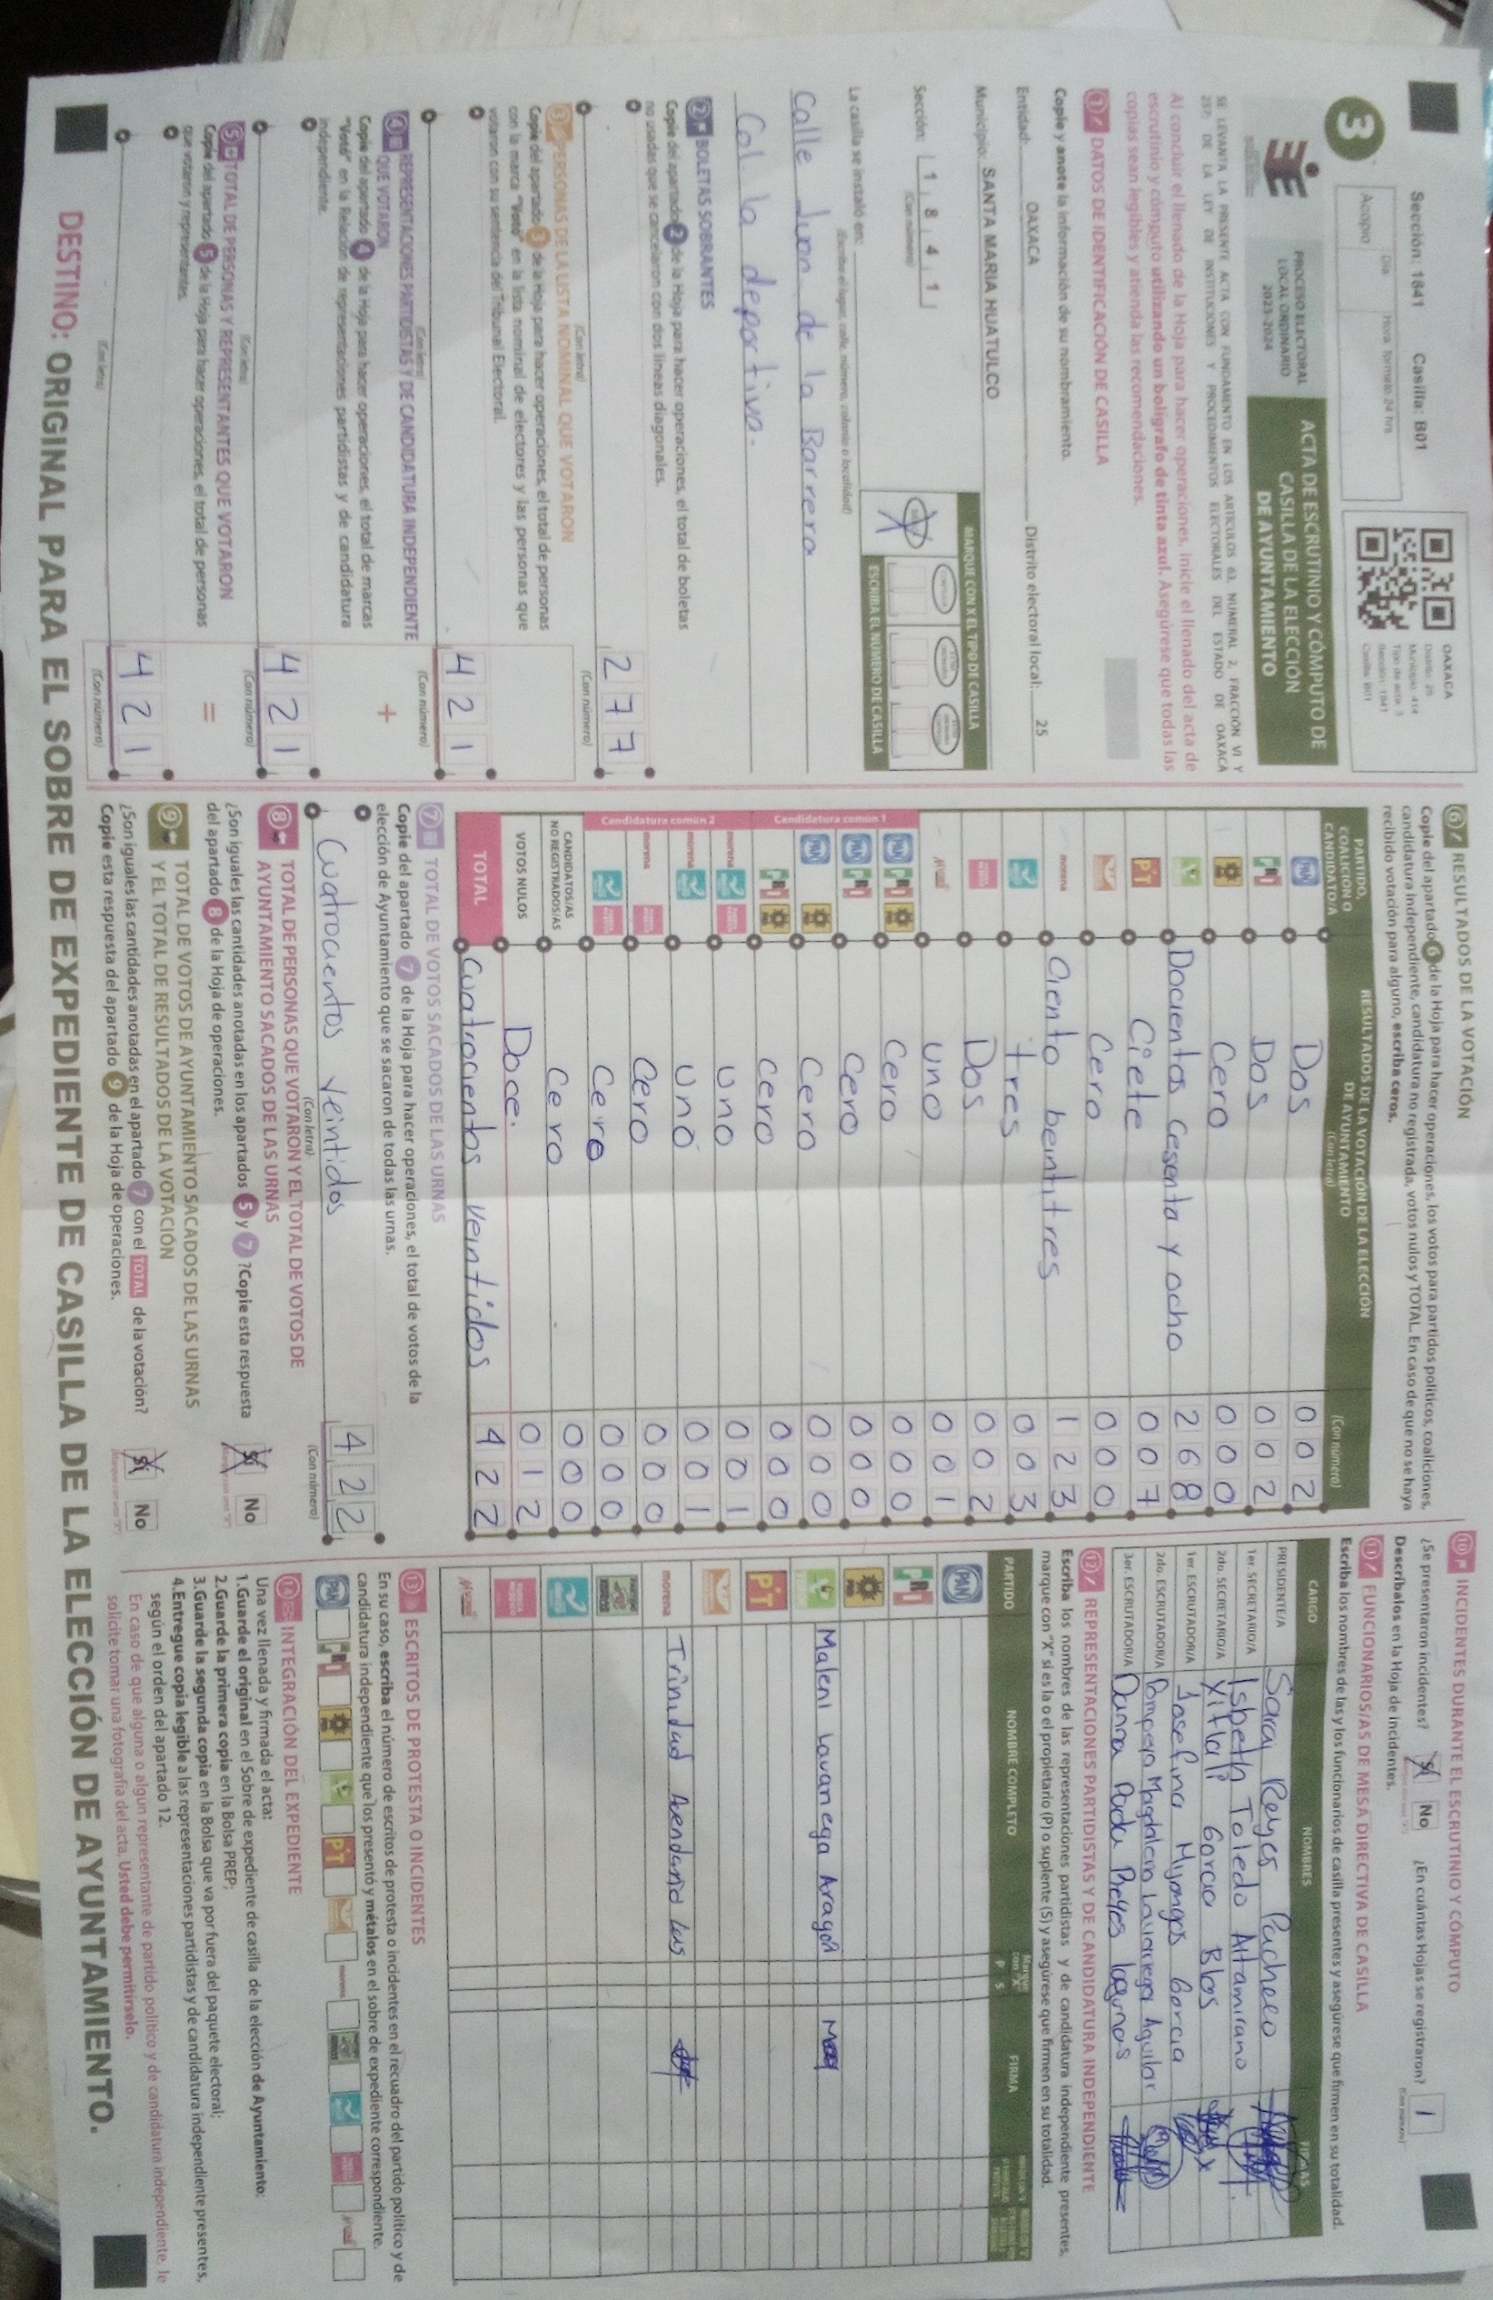 Sección: 1841 Casilla: B01
Acopio
Día
Hora formato 24 hrs
OAXACA
Distrito: 25
Municipio: 414
Tipo de acta: 3
Sección: 1841
Casilla: B01
3
PROCESO ELECTORAL
LOCAL ORDINARIO
2023-2024
ACTA DE ESCRUTINIO Y CÓMPUTO DE
CASILLA DE LA ELECCIÓN
DE AYUNTAMIENTO
SE LEVANTA LA PRESENTE ACTA CON FUNDAMENTO EN LOS ARTÍCULOS 63, NUMERAL 2, FRACCIÓN VI Y
237, DE LA LEY DE INSTITUCIONES Y PROCEDIMIENTOS ELECTORALES DEL ESTADO DE OAXACA
Al concluir el llenado de la Hoja para hacer operaciones, inicie el llenado del acta de
escrutinio y cómputo utilizando un bolígrafo de tinta azul. Asegúrese que todas las
copias sean legibles y atienda las recomendaciones.
1 DATOS DE IDENTIFICACIÓN DE CASILLA
Copie y anote la información de su nombramiento.
Entidad: OAXACA Distrito electoral local: 25
Municipio: SANTA MARIA HUATULCO
MARQUE CON X EL TIPO DE CASILLA
Sección: 1 8 4 1
(Con número)
ESCRIBA EL NÚMERO DE CASILLA
La casilla se instaló en:
(Escriba el lugar, calle, número, colonia o localidad)
Calle Juan de la Barrera
Col. la deportiva.
2 BOLETAS SOBRANTES
Copie del apartado 2 de la Hoja para hacer operaciones, el total de boletas
no usadas que se cancelaron con dos líneas diagonales.
2 7 7
(Con letra)
(Con número)
3 PERSONAS DE LA LISTA NOMINAL QUE VOTARON
Copie del apartado 3 de la Hoja para hacer operaciones, el total de personas
con la marca "Votó" en la lista nominal de electores y las personas que
votaron con su sentencia del Tribunal Electoral.
4 2 1
(Con letra)
(Con número)
4 REPRESENTACIONES PARTIDISTAS Y DE CANDIDATURA INDEPENDIENTE
QUE VOTARON
+
Copie del apartado 4 de la Hoja para hacer operaciones, el total de marcas
"Votó" en la Relación de representaciones partidistas y de candidatura
independiente.
4 2 1
(Con letra)
(Con número)
5 TOTAL DE PERSONAS Y REPRESENTANTES QUE VOTARON
=
Copie del apartado 5 de la Hoja para hacer operaciones, el total de personas
que votaron y representantes.
4 2 1
(Con letra)
(Con número)
6 RESULTADOS DE LA VOTACIÓN
Copie del apartado 6 de la Hoja para hacer operaciones, los votos para partidos políticos, coaliciones,
candidatura independiente, candidatura no registrada, votos nulos y TOTAL. En caso de que no se haya
recibido votación para alguno, escriba ceros.
PARTIDO,
COALICIÓN O
CANDIDATO/A
RESULTADOS DE LA VOTACIÓN DE LA ELECCIÓN
DE AYUNTAMIENTO
(Con letra)
(Con número)
PAN Dos 0 0 2
PRI Dos 0 0 2
PRD Cero 0 0 0
Docientos Cesenta y ocho 2 6 8
PT Ciete 0 0 7
Cero 0 0 0
morena Ciento beintitres 1 2 3
tres 0 0 3
Dos 0 0 2
uno 0 0 1
Candidatura común 1
PAN PRI PRD Cero 0 0 0
PAN PRI Cero 0 0 0
PAN PRD Cero 0 0 0
PRI PRD cero 0 0 0
Candidatura común 2
morena uno 0 0 1
morena uno 0 0 1
morena Cero 0 0 0
Cero 0 0 0
CANDIDATOS/AS
NO REGISTRADOS/AS
Cero 0 0 0
VOTOS NULOS Doce. 0 1 2
TOTAL Cuatrocientos veintidos 4 2 2
7 TOTAL DE VOTOS SACADOS DE LAS URNAS
Copie del apartado 7 de la Hoja para hacer operaciones, el total de votos de la
elección de Ayuntamiento que se sacaron de todas las urnas.
Cuatrocientos veintidos 4 2 2
(Con letra)
(Con número)
8 TOTAL DE PERSONAS QUE VOTARON Y EL TOTAL DE VOTOS DE
AYUNTAMIENTO SACADOS DE LAS URNAS
¿Son iguales las cantidades anotadas en los apartados 5 y 7 ?Copie esta respuesta
del apartado 8 de la Hoja de operaciones.
Sí No
9 TOTAL DE VOTOS DE AYUNTAMIENTO SACADOS DE LAS URNAS
Y EL TOTAL DE RESULTADOS DE LA VOTACIÓN
¿Son iguales las cantidades anotadas en el apartado 7 con el TOTAL de la votación?
Copie esta respuesta del apartado 9 de la Hoja de operaciones.
Sí No
10 INCIDENTES DURANTE EL ESCRUTINIO Y CÓMPUTO
¿Se presentaron incidentes? Sí No ¿En cuántas Hojas se registraron? 1
Descríbalos en la Hoja de incidentes.
11 FUNCIONARIOS/AS DE MESA DIRECTIVA DE CASILLA
Escriba los nombres de las y los funcionarios de casilla presentes y asegúrese que firmen en su totalidad.
CARGO NOMBRES FIRMAS
PRESIDENTE/A Saray Reyes Pacheco
1er. SECRETARIO/A Isbeth Toledo Altamirano
2do. SECRETARIO/A Yitlali Garcia Blas
1er. ESCRUTADOR/A Josefina Mijangos Garcia
2do. ESCRUTADOR/A Pompeyo Magdaleno Lavariega Aguilar
3er. ESCRUTADOR/A Danna Reyes Lagunas
12 REPRESENTACIONES PARTIDISTAS Y DE CANDIDATURA INDEPENDIENTE
Escriba los nombres de las representaciones partidistas y de candidatura independiente presentes,
marque con "X" si es la o el propietario (P) o suplente (S) y asegúrese que firmen en su totalidad.
PARTIDO NOMBRE COMPLETO P S FIRMA
PAN
PRI
PRD
Maleni Lavariega Aragon
PT
morena Trinidad Avendaño Luis
13 ESCRITOS DE PROTESTA O INCIDENTES
En su caso, escriba el número de escritos de protesta o incidentes en el recuadro del partido político y de
candidatura independiente que los presentó y métalos en el sobre de expediente correspondiente.
14 INTEGRACIÓN DEL EXPEDIENTE
Una vez llenada y firmada el acta:
1.Guarde el original en el Sobre de expediente de casilla de la elección de Ayuntamiento;
2.Guarde la primera copia en la Bolsa PREP;
3.Guarde la segunda copia en la Bolsa que va por fuera del paquete electoral;
4.Entregue copia legible a las representaciones partidistas y de candidatura independiente presentes,
según el orden del apartado 12.
En caso de que alguna o algun representante de partido político y de candidatura independiente, le
solicite tomar una fotografía del acta, Usted debe permitírselo.
DESTINO: ORIGINAL PARA EL SOBRE DE EXPEDIENTE DE CASILLA DE LA ELECCIÓN DE AYUNTAMIENTO.